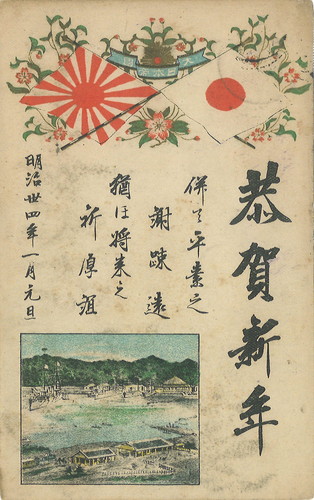 恭賀新年
併て平素之
謝疎遠
猶ほ将来之
祈厚誼
明治丗四年一月元旦